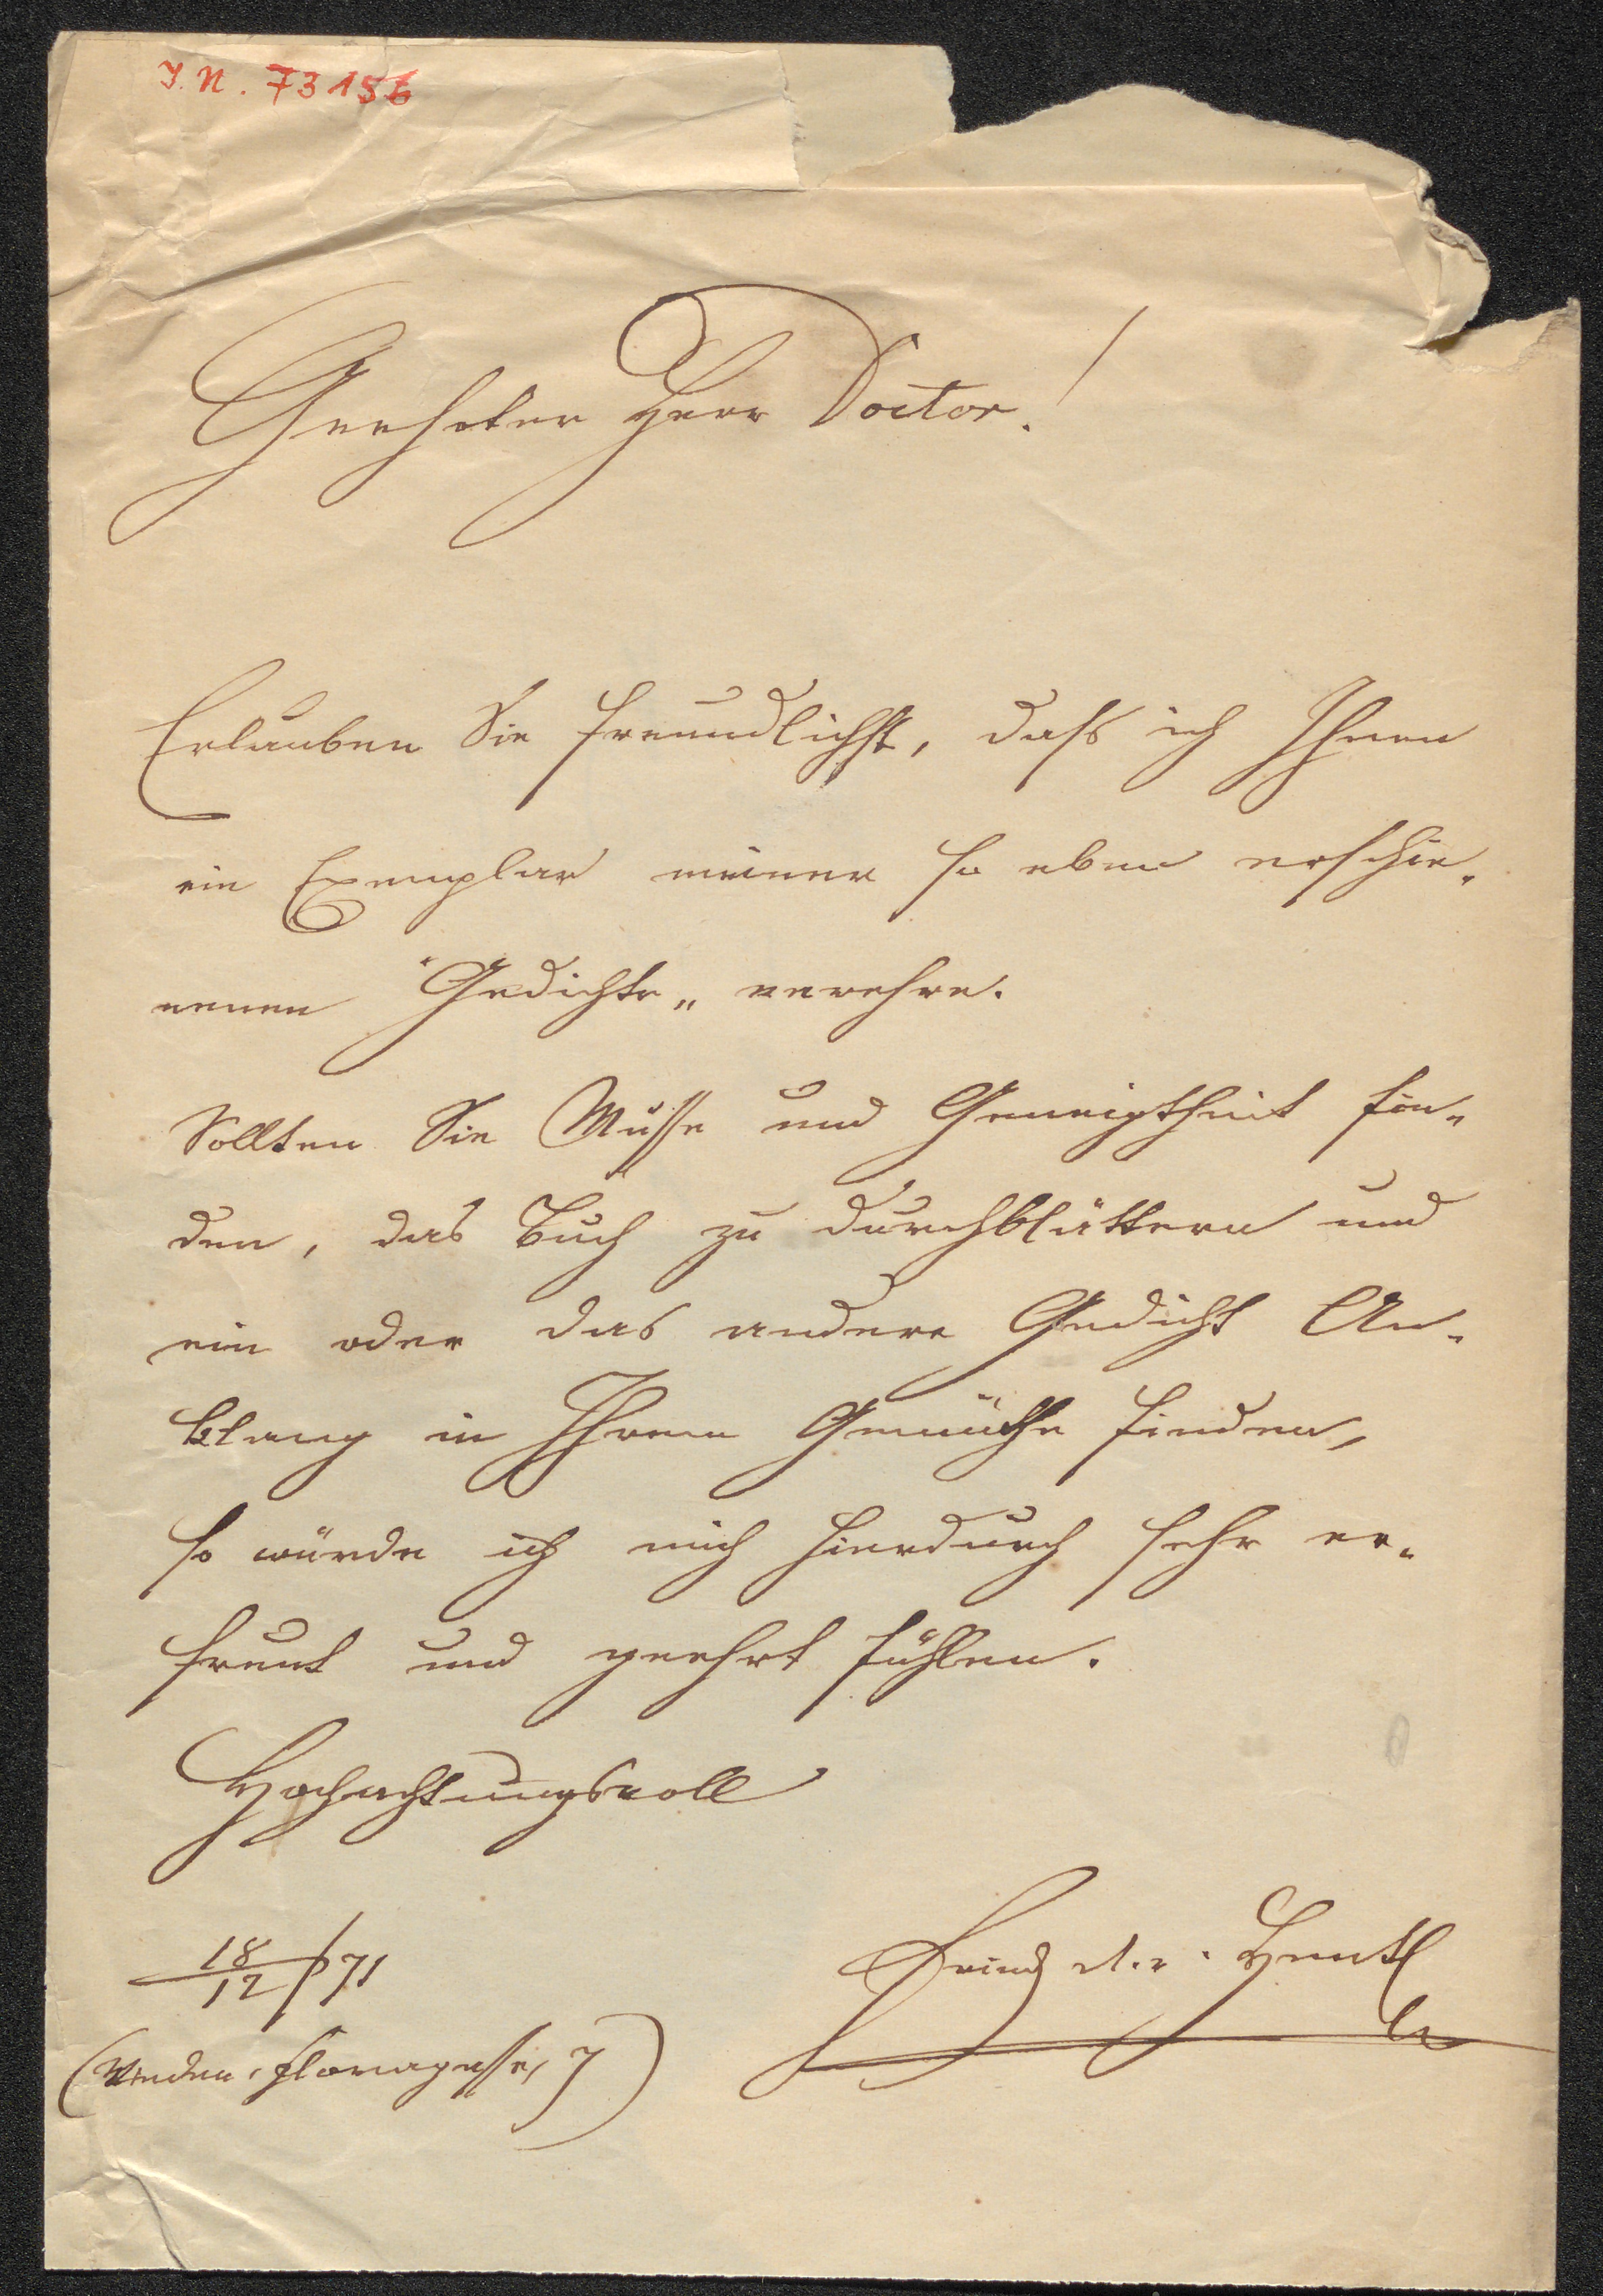 I. N. 73156
Geehrter Herr Doctor!
Erlauben Sie freundlichst, daß ich Ihnen
ein Exemplar meiner so eben erschie-
nenen "Gedichte" verehre.
Sollten Sie Muße und Geneigtheit fin-
den, das Buch zu durchblättern und
ein oder das andere Gedicht An-
klang in Ihrem Gemüthe finden,
so würde ich mich hierdurch sehr er-
freut und geehrt fühlen.
Hochachtungsvoll
18/12 71
Fried. v. Hentl
(Wieden, Floragasse, 7)